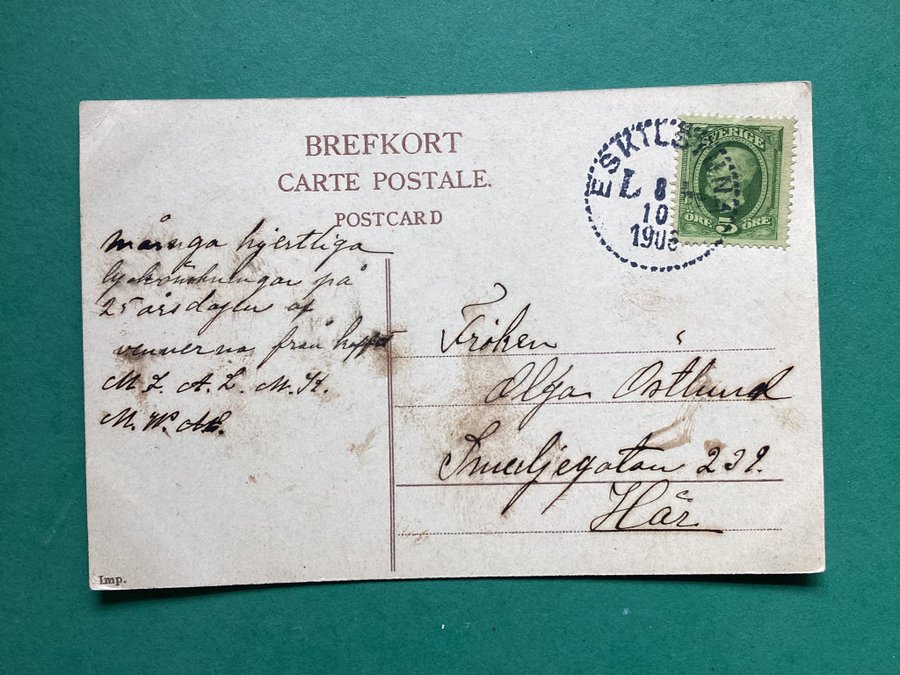 BREFKORT
CARTE POSTALE.
POSTCARD
ESKILSTUNA
L 8
10
190
SVERIGE
ÖRE 5 ÖRE
många hjertliga
lyckönskningar på
25 årsdagen af
vennerna från
M. L. A. L. M. K.
M. W. AL.
Fröken
Olga Östlund
Smedjegatan 239.
Här
Imp.